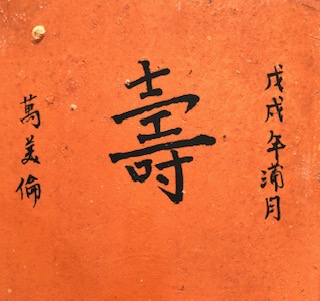 戊戌年浦月
壽
萬美倫